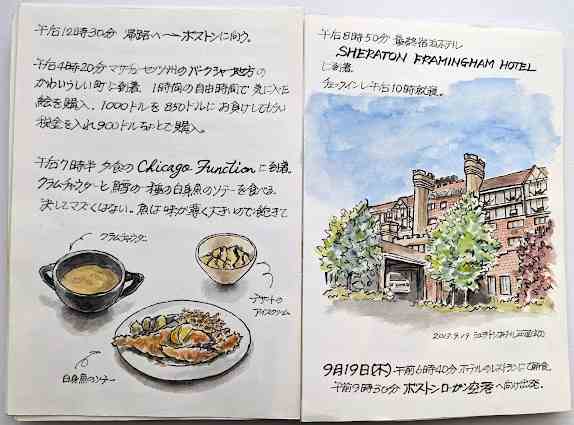 午后12時30分 帰路へ── ボストンに向う。
午后4時20分 マサチューセッツ州のバークシャー地方の
かわいらしい町に到着. 1時間の自由時間で気に入た
絵を購入. 1000ドルを850ドルにお負けしてもらい
税金を入れ900ドルちょとで購入。
午后7時半 夕食の Chicago Function に到着.
クラムチャウダーと鱈の一種の白身魚のソテーを食べる.
決してマズくはない. 魚は味が薄く大きいので飽きて
クラムチャウダー
デザートの
アイスクリーム
白身魚のソテー
午后8時50分 最終宿泊ホテル
SHERATON FRAMINGHAM HOTEL
に到着.
チェックインし午后10時就寝.
シェラトンホテル
9月19日(木) 午前6時40分 ホテルのレストランにて朝食.
午前9時30分 ボストンローガン空港へ向け出発.